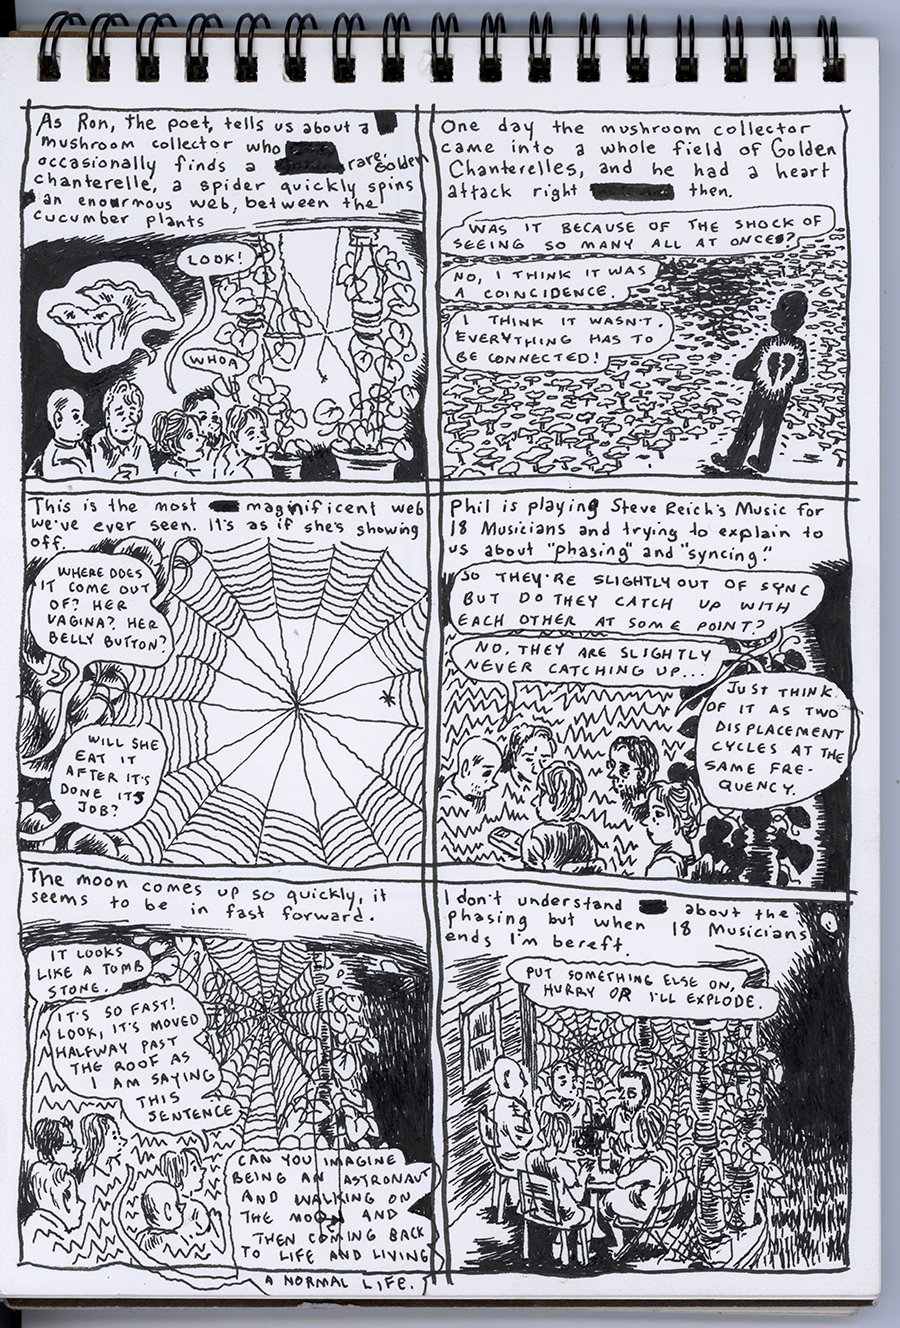 As Ron, the poet, tells us about a
mushroom collector who
occasionally finds a rare, Golden
chanterelle, a spider quickly spins
an enormous web, between the
cucumber plants
LOOK!
WHOA
One day the mushroom collector
came into a whole field of Golden
Chanterelles, and he had a heart
attack right then.
WAS IT BECAUSE OF THE SHOCK OF
SEEING SO MANY ALL AT ONCE?
NO, I THINK IT WAS
A COINCIDENCE.
I THINK IT WASN'T.
EVERYTHING HAS TO
BE CONNECTED!
This is the most maginificent web
we've ever seen. It's as if she's showing
off.
WHERE DOES
IT COME OUT
OF? HER
VAGINA? HER
BELLY BUTTON?
WILL SHE
EAT IT
AFTER IT'S
DONE ITS
JOB?
Phil is playing Steve Reich's Music for
18 Musicians and trying to explain to
us about "phasing" and "syncing."
SO THEY'RE SLIGHTLY OUT OF SYNC
BUT DO THEY CATCH UP WITH
EACH OTHER AT SOME POINT?
NO, THEY ARE SLIGHTLY
NEVER CATCHING UP...
JUST THINK
OF IT AS TWO
DISPLACEMENT
CYCLES AT THE
SAME FRE-
QUENCY.
The moon comes up so quickly, it
seems to be in fast forward.
IT LOOKS
LIKE A TOMB
STONE.
IT'S SO FAST!
LOOK, IT'S MOVED
HALFWAY PAST
THE ROOF AS
I AM SAYING
THIS
SENTENCE
CAN YOU IMAGINE
BEING AN ASTRONAUT
AND WALKING ON
THE MOON AND
THEN COMING BACK
TO LIFE AND LIVING
A NORMAL LIFE.
I don't understand about the
phasing but when 18 Musicians
ends I'm bereft.
PUT SOMETHING ELSE ON,
HURRY OR I'LL EXPLODE.